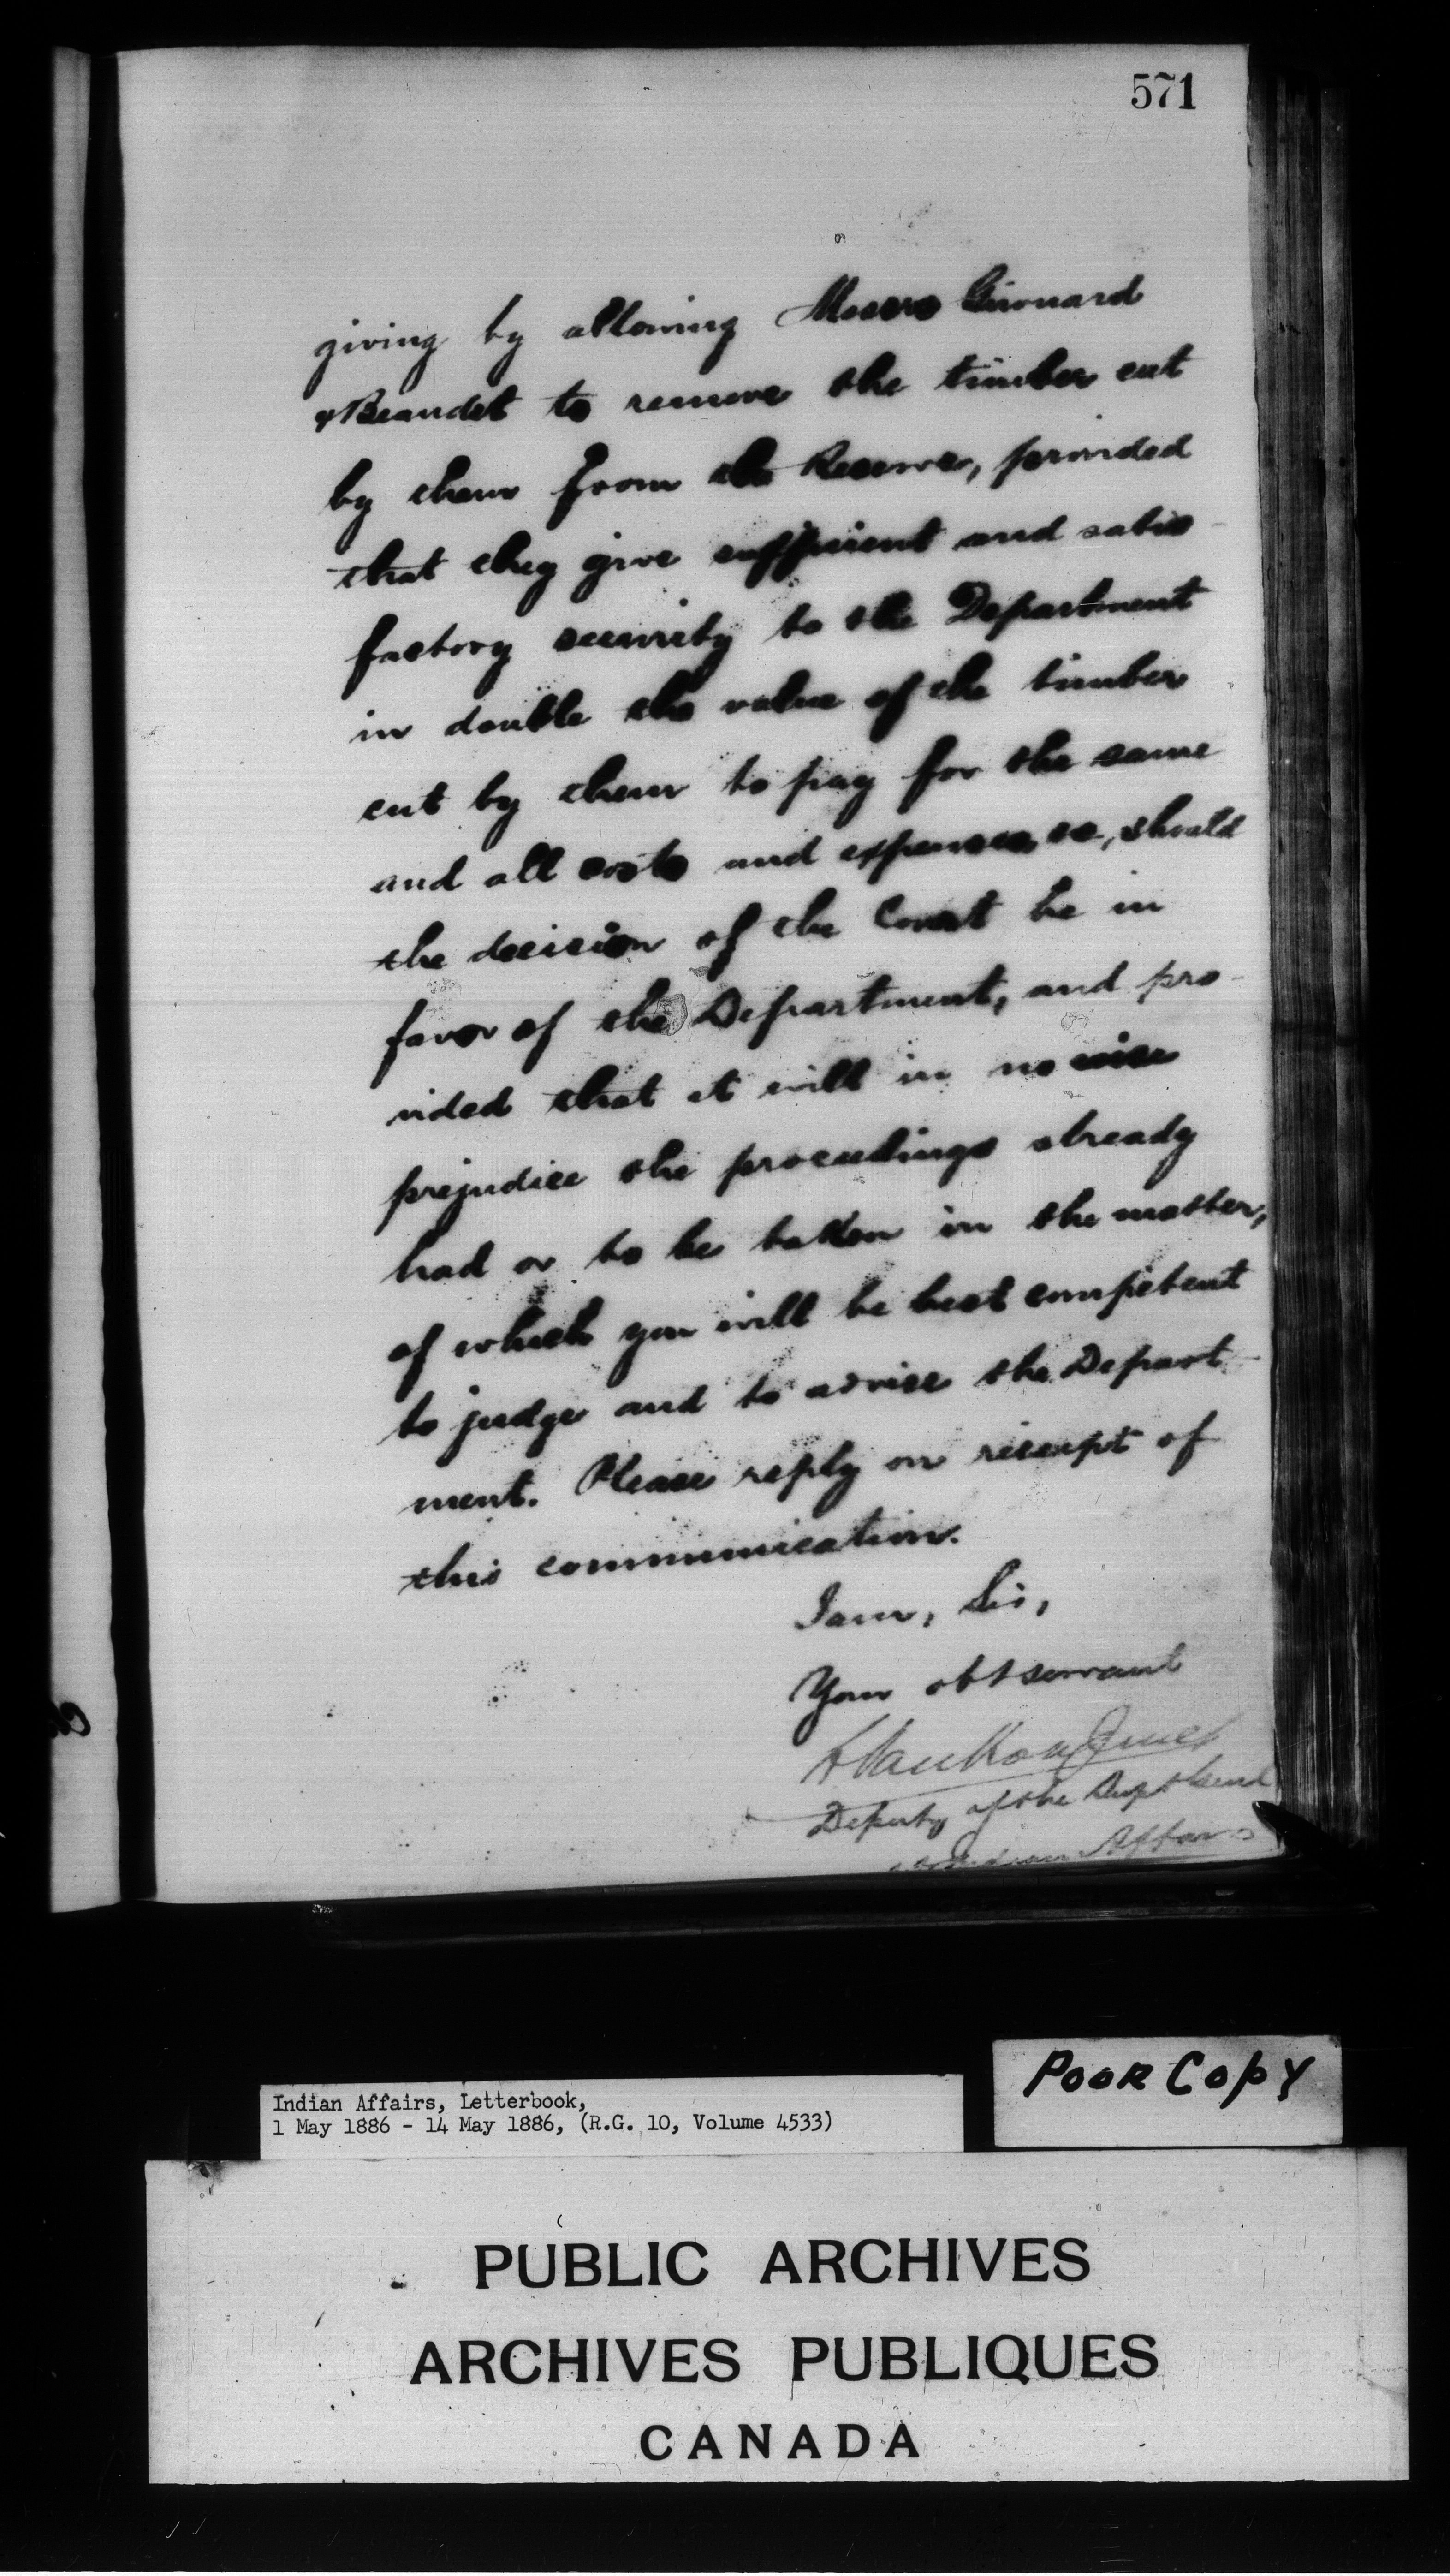 571
giving by allowing Messrs Girouard
& Beaudet to remove the timber cut
by them from the Reserve, provided
that they give sufficient and satis-
factory security to the Department
in double the value of the timber
cut by them to pay for the same
and all costs and expenses, &c, should
the decision of the Court be in
favor of the Department, and pro-
vided that it will in no wise
prejudice the proceedings already
had or to be taken in the matter,
of which you will be best competent
to judge and to advise the Depart-
ment. Please reply on receipt of
this communication.
I am, Sir,
Your obt servant
L VanKoughnet
Deputy of the Supt Genl
of Indian Affairs
POOR COPY
Indian Affairs, Letterbook,
1 May 1886 - 14 May 1886, (R.G. 10, Volume 4533)
PUBLIC ARCHIVES
ARCHIVES PUBLIQUES
CANADA